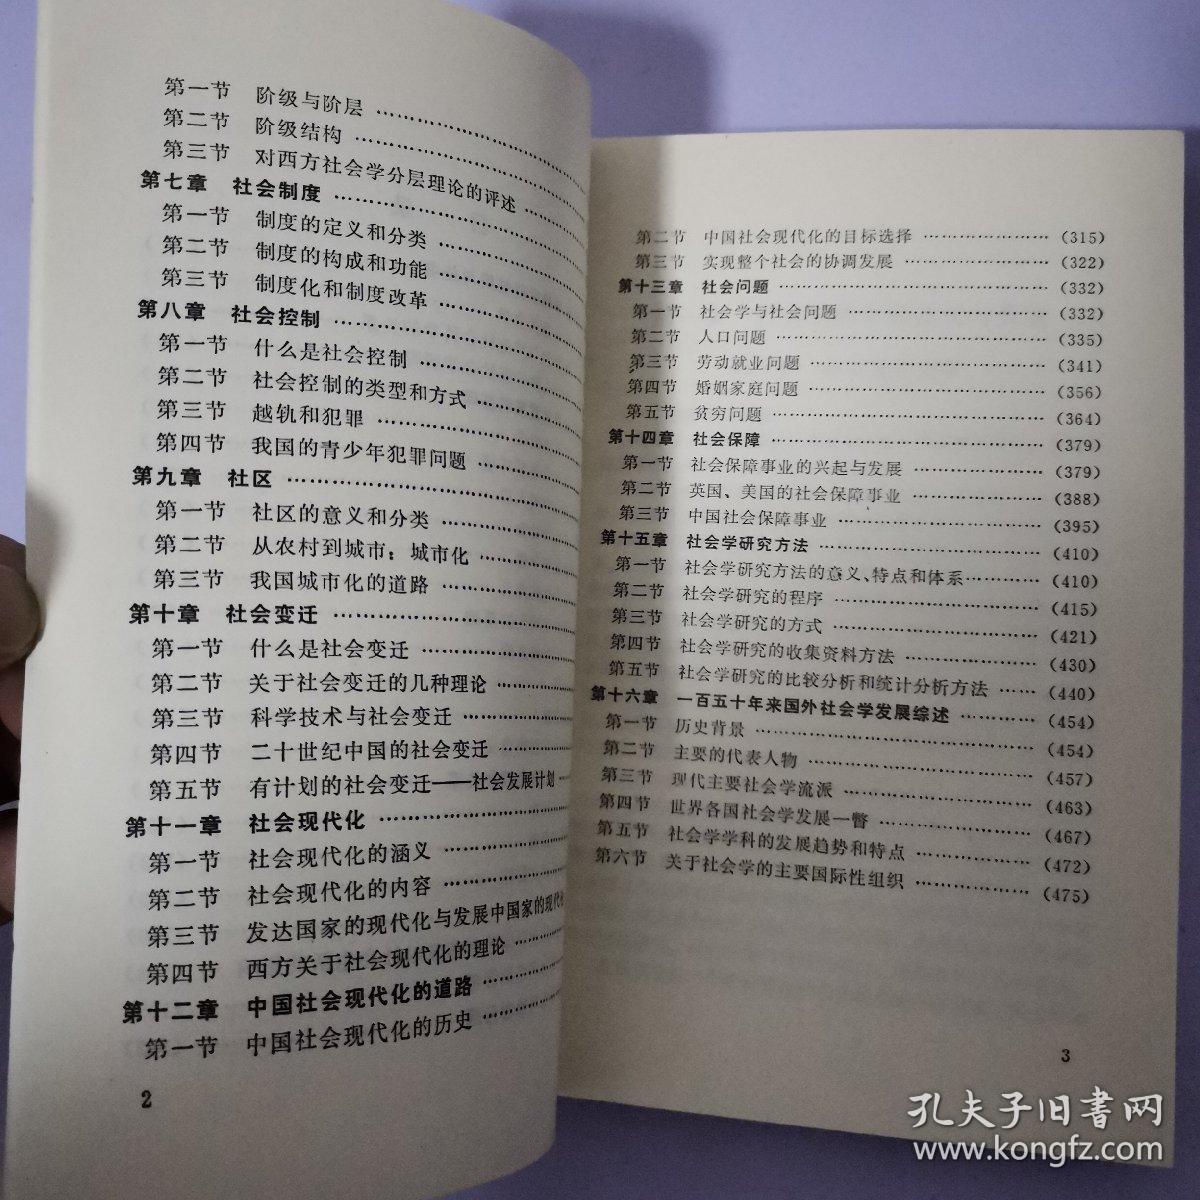 第一节 阶级与阶层 ……………
第二节 阶级结构 ……………
第三节 对西方社会学分层理论的评述 ……
第七章 社会制度 ……………
第一节 制度的定义和分类 ……………
第二节 制度的构成和功能 ……………
第三节 制度化和制度改革 ……………
第八章 社会控制 ……………
第一节 什么是社会控制 ……………
第二节 社会控制的类型和方式 ……………
第三节 越轨和犯罪 ……………
第四节 我国的青少年犯罪问题 ……………
第九章 社区 ……………
第一节 社区的意义和分类 ……………
第二节 从农村到城市：城市化 ……………
第三节 我国城市化的道路 ……………
第十章 社会变迁 ……………
第一节 什么是社会变迁 ……………
第二节 关于社会变迁的几种理论 ……………
第三节 科学技术与社会变迁 ……………
第四节 二十世纪中国的社会变迁 ……………
第五节 有计划的社会变迁——社会发展计划 …
第十一章 社会现代化 ……………
第一节 社会现代化的涵义 ……………
第二节 社会现代化的内容 ……………
第三节 发达国家的现代化与发展中国家的现代
第四节 西方关于社会现代化的理论 ……………
第十二章 中国社会现代化的道路 ……………
第一节 中国社会现代化的历史 ……………
2
第二节 中国社会现代化的目标选择 …………… (315)
第三节 实现整个社会的协调发展 …………… (322)
第十三章 社会问题 …………… (332)
第一节 社会学与社会问题 …………… (332)
第二节 人口问题 …………… (335)
第三节 劳动就业问题 …………… (341)
第四节 婚姻家庭问题 …………… (356)
第五节 贫穷问题 …………… (364)
第十四章 社会保障 …………… (379)
第一节 社会保障事业的兴起与发展 …………… (379)
第二节 英国、美国的社会保障事业 …………… (388)
第三节 中国社会保障事业 …………… (395)
第十五章 社会学研究方法 …………… (410)
第一节 社会学研究方法的意义、特点和体系 ………… (410)
第二节 社会学研究的程序 …………… (415)
第三节 社会学研究的方式 …………… (421)
第四节 社会学研究的收集资料方法 …………… (430)
第五节 社会学研究的比较分析和统计分析方法 …… (440)
第十六章 一百五十年来国外社会学发展综述 ………… (454)
第一节 历史背景 …………… (454)
第二节 主要的代表人物 …………… (457)
第三节 现代主要社会学流派 …………… (463)
第四节 世界各国社会学发展一瞥 …………… (467)
第五节 社会学学科的发展趋势和特点 …………… (472)
第六节 关于社会学的主要国际性组织 …………… (475)
3
孔夫子旧书网
www.kongfz.com